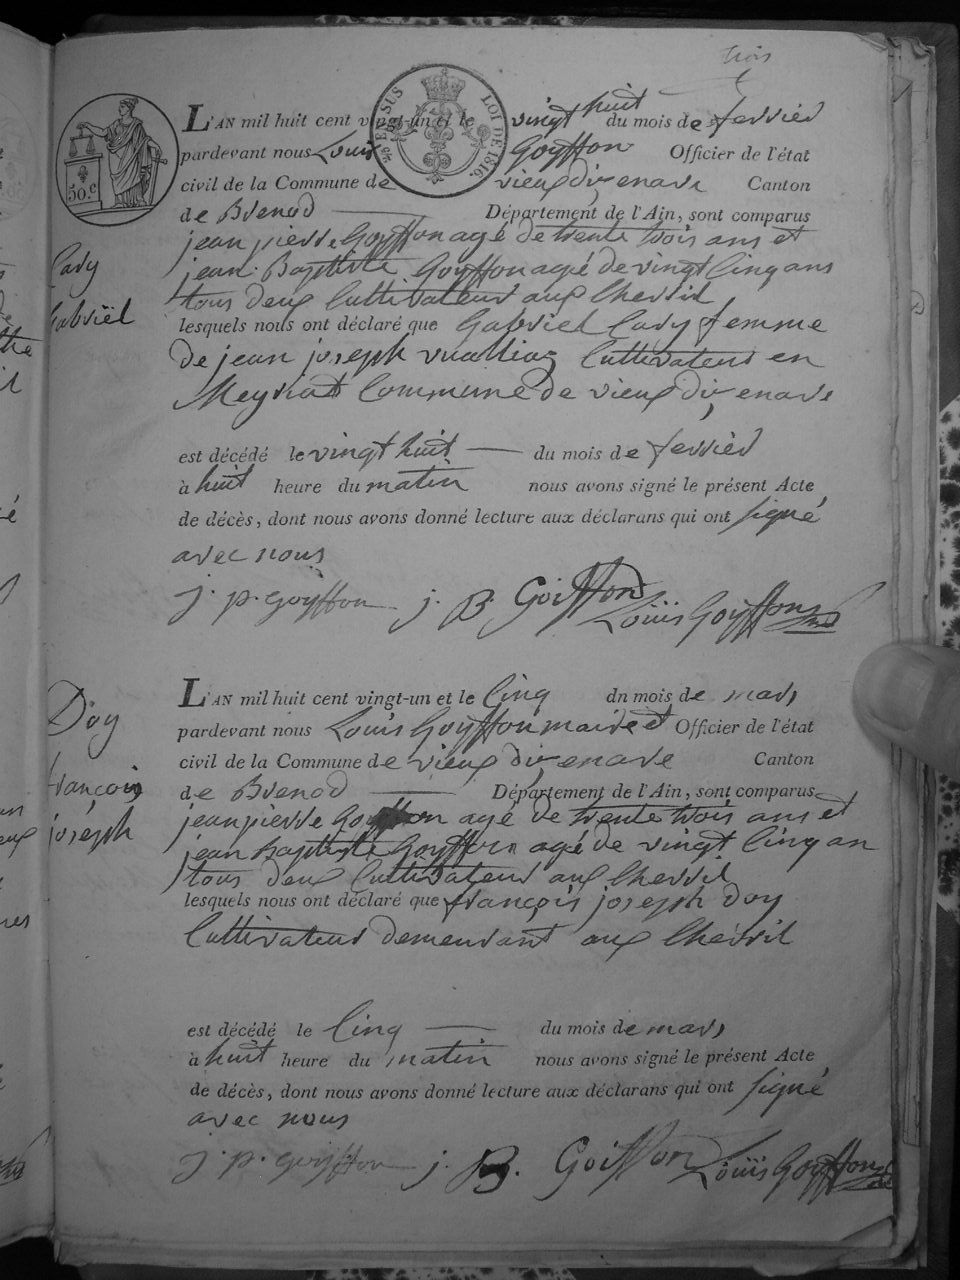 trois
50.c
LOI DE 1816.
L'AN mil huit cent vingt-un et le vingt huit du mois de fevrier
pardevant nous Louis Goyffon Officier de l'état
civil de la Commune de vieux d'izenave Canton
de Brenod Département de l'Ain, sont comparus
jean pierre Goyffon agé de trente trois ans et
jean Baptiste Goyffon agé de vingt Cinq ans
tous deux Cultivateurs aux Chevril
lesquels nous ont déclaré que Gabriel Cavy femme
de jean joseph vualliaz Cultivateur en
Meyriat Commune de vieux d'izenave
est décédé le vingt huit du mois de fevrier
à huit heure du matin nous avons signé le présent Acte
de décès, dont nous avons donné lecture aux déclarans qui ont signé
avec nous
j. p. goyffon j. B. Goiffon Louis Goyffon
Cavy
Gabriël
L'AN mil huit cent vingt-un et le Cinq dn mois de mars
pardevant nous Louis Goyffon maire et Officier de l'état
civil de la Commune de vieux d'izenave Canton
de Brenod Département de l'Ain, sont comparus
jean pierre Goyffon agé de trente trois ans et
jean Baptiste Goyffon agé de vingt Cinq an
tous deux Cultivateurs aux Chevril
lesquels nous ont déclaré que françois joseph Doy
Cultivateur demeurant aux Chevril
est décédé le Cinq du mois de mars
à huit heure du matin nous avons signé le présent Acte
de décès, dont nous avons donné lecture aux déclarans qui ont signé
avec nous
j. p. goyffon j. B. Goiffon Louis Goyffon
Doy
françois
joseph